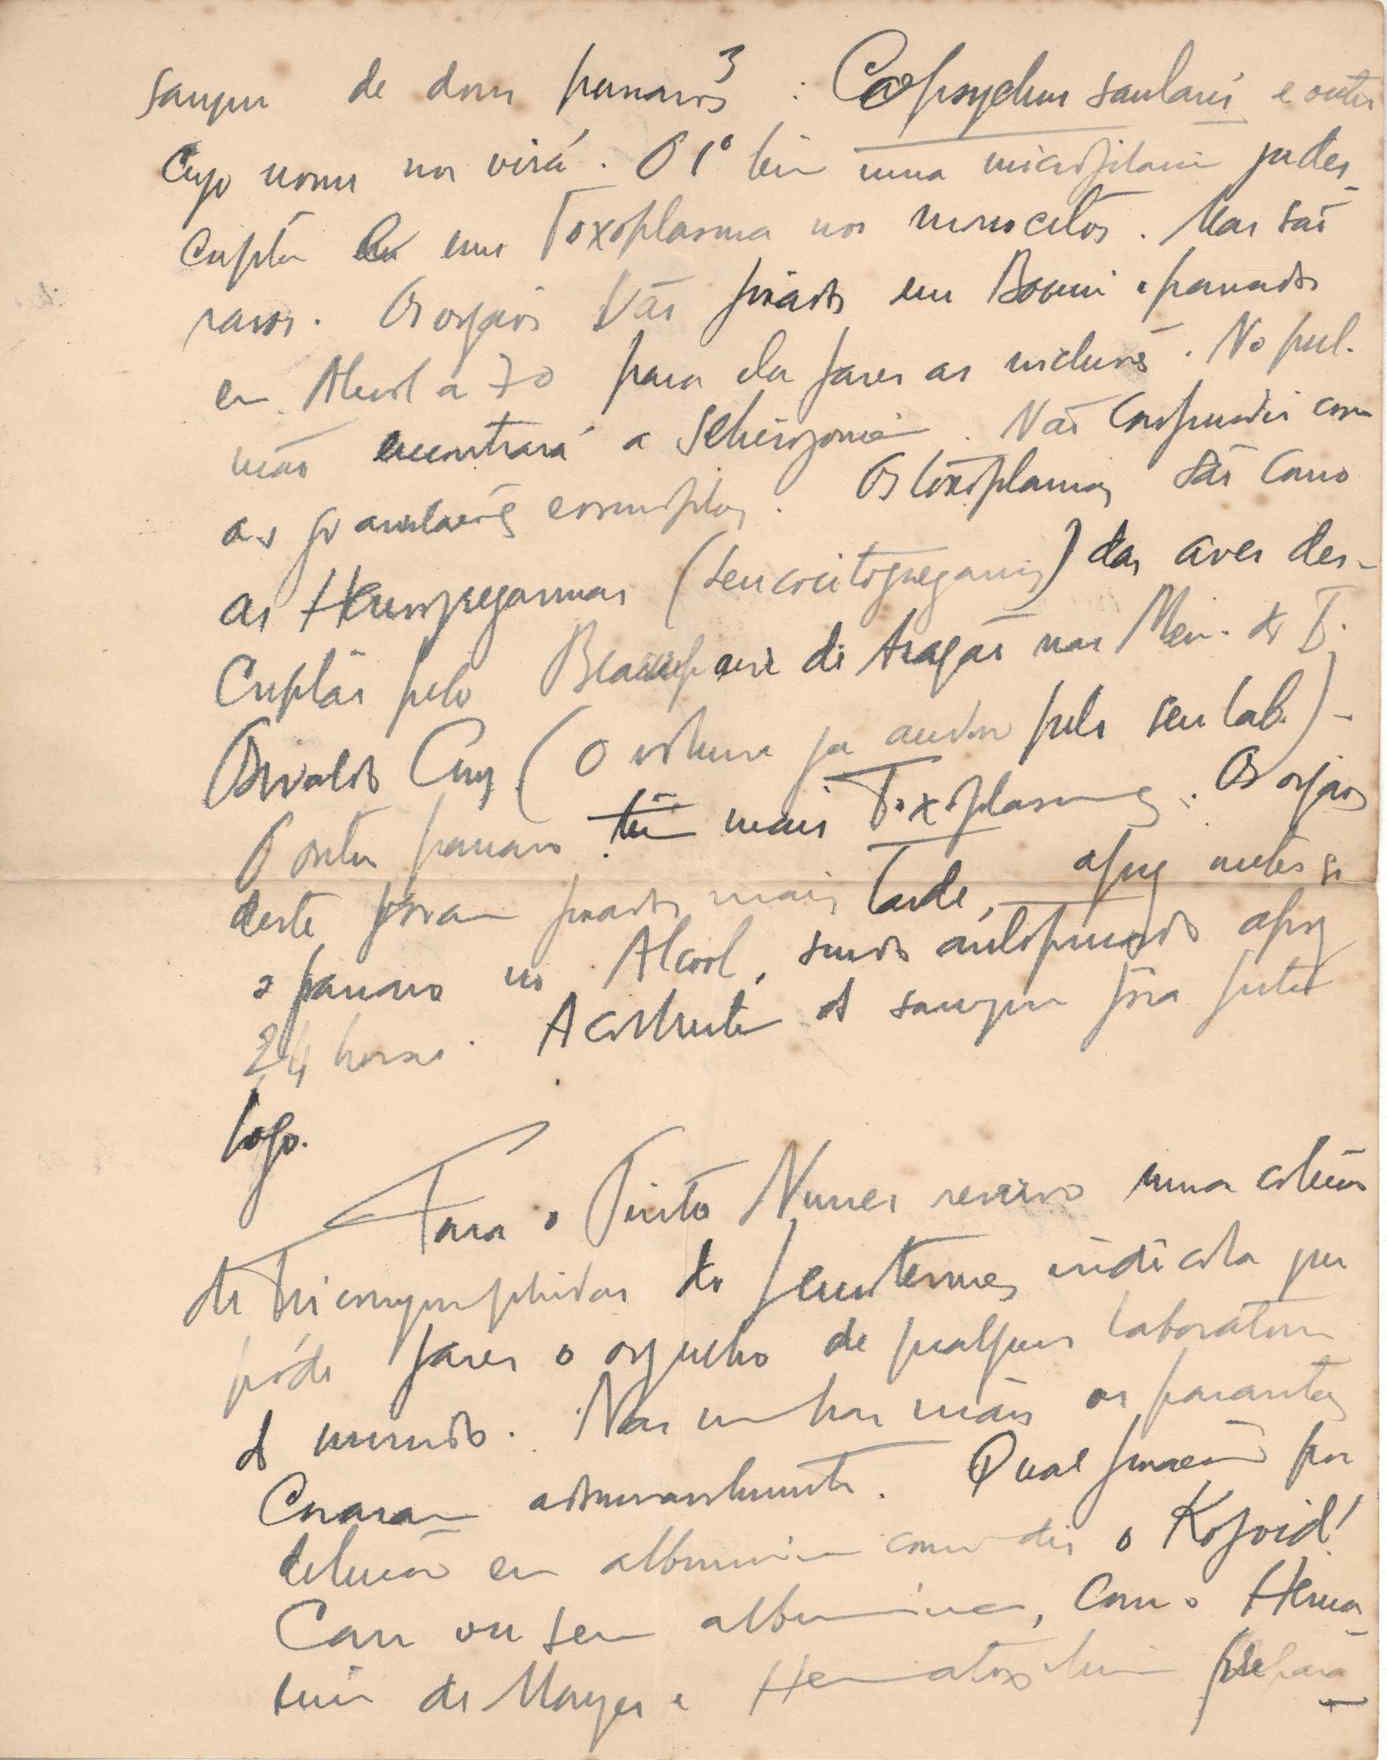 sangue de dois passaros 3 : Copsychus saularis e outro
cujo nome nos virá. O 1º tem uma microfilaria já des-
cripta e um Toxoplasma nos monocitos. Mas são
raros. Os orgãos vão fixados em Bouin e passados
em Alcool a 70 para ela fazer as inclusões. No pul-
mão encontrará a schizogonia. Não confundir com
as granulações eosinofilas. Os toxoplasmas são como
as Hemogregarinas (Leucocitogregarinas) das aves des-
criptas pelo Beaurepaire de Aragão nas Mem. do I.
Oswaldo Cruz (O volume ja andou pelo seu lab.) -
O outro passaro tem mais Toxoplasmas. Os orgãos
deste foram fixados mais tarde, apoz metter-se
o passaro no Alcool, sendo autopsiado apoz
24 horas. A colheita do sangue fôra feita
logo.
Para o Pinto Nunes reservo uma coleção
de Triconymphidas do Leucotermes indicola que
póde fazer o orgulho de qualquer laboratorio
do mundo. Nas minhas mãos os parasitas
coraram admiravelmente. Qual fixação por
diluição em albumina como diz o Kofoid!
Com ou sem albumina, com o Hema-
tein de Mayer e Hematoxilina prepara-